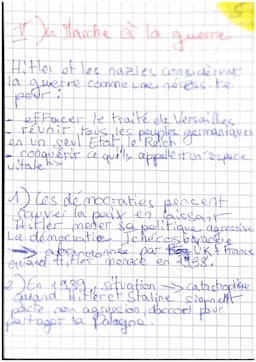 5
V) La Marche à la guerre
Hitler et les nazies considèrent
la guerre comme une nécessité
pour :
- effacer le traité de Versailles
- réunir tous les peuples germaniques
en un seul Etat, le Reich
- conquérir ce qu'ils appellent un "espace
vitale"
1) Les démocraties pensent
sauver la paix en laissant
Hitler mener sa politique agressive
La démocratie Tchécoslovaque
→ abandonnée par UK & France
quand Hitler menace en 1938.
2) En 1939, situation → catastrophique
quand Hitler et Staline signent
pacte non agression, d'accord pour
partager la Pologne.